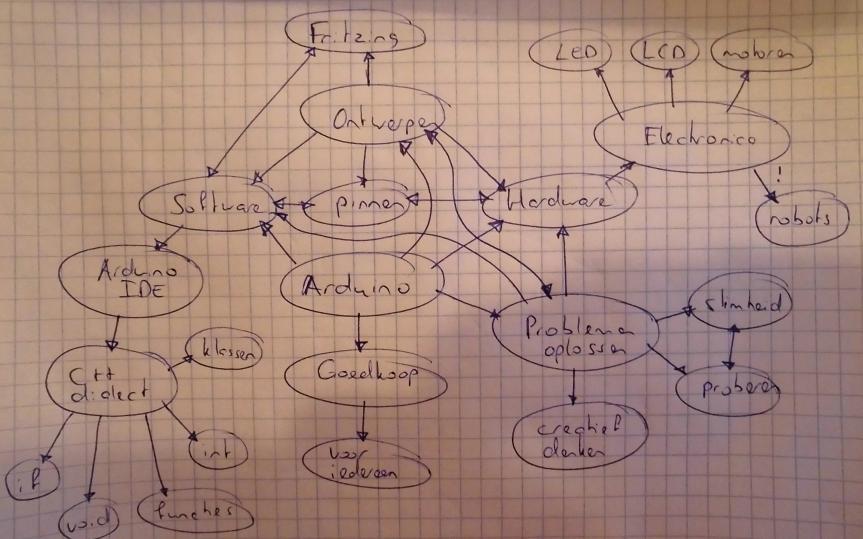 Fritzing
LED
LCD
motoren
Ontwerpen
Electronica
!
Software
pinnen
Hardware
robots
Arduino
IDE
Arduino
slimheid
Problemen
oplossen
klassen
C++
dialect
Goedkoop
proberen
creatief
denken
int
voor
iedereen
if
void
functies